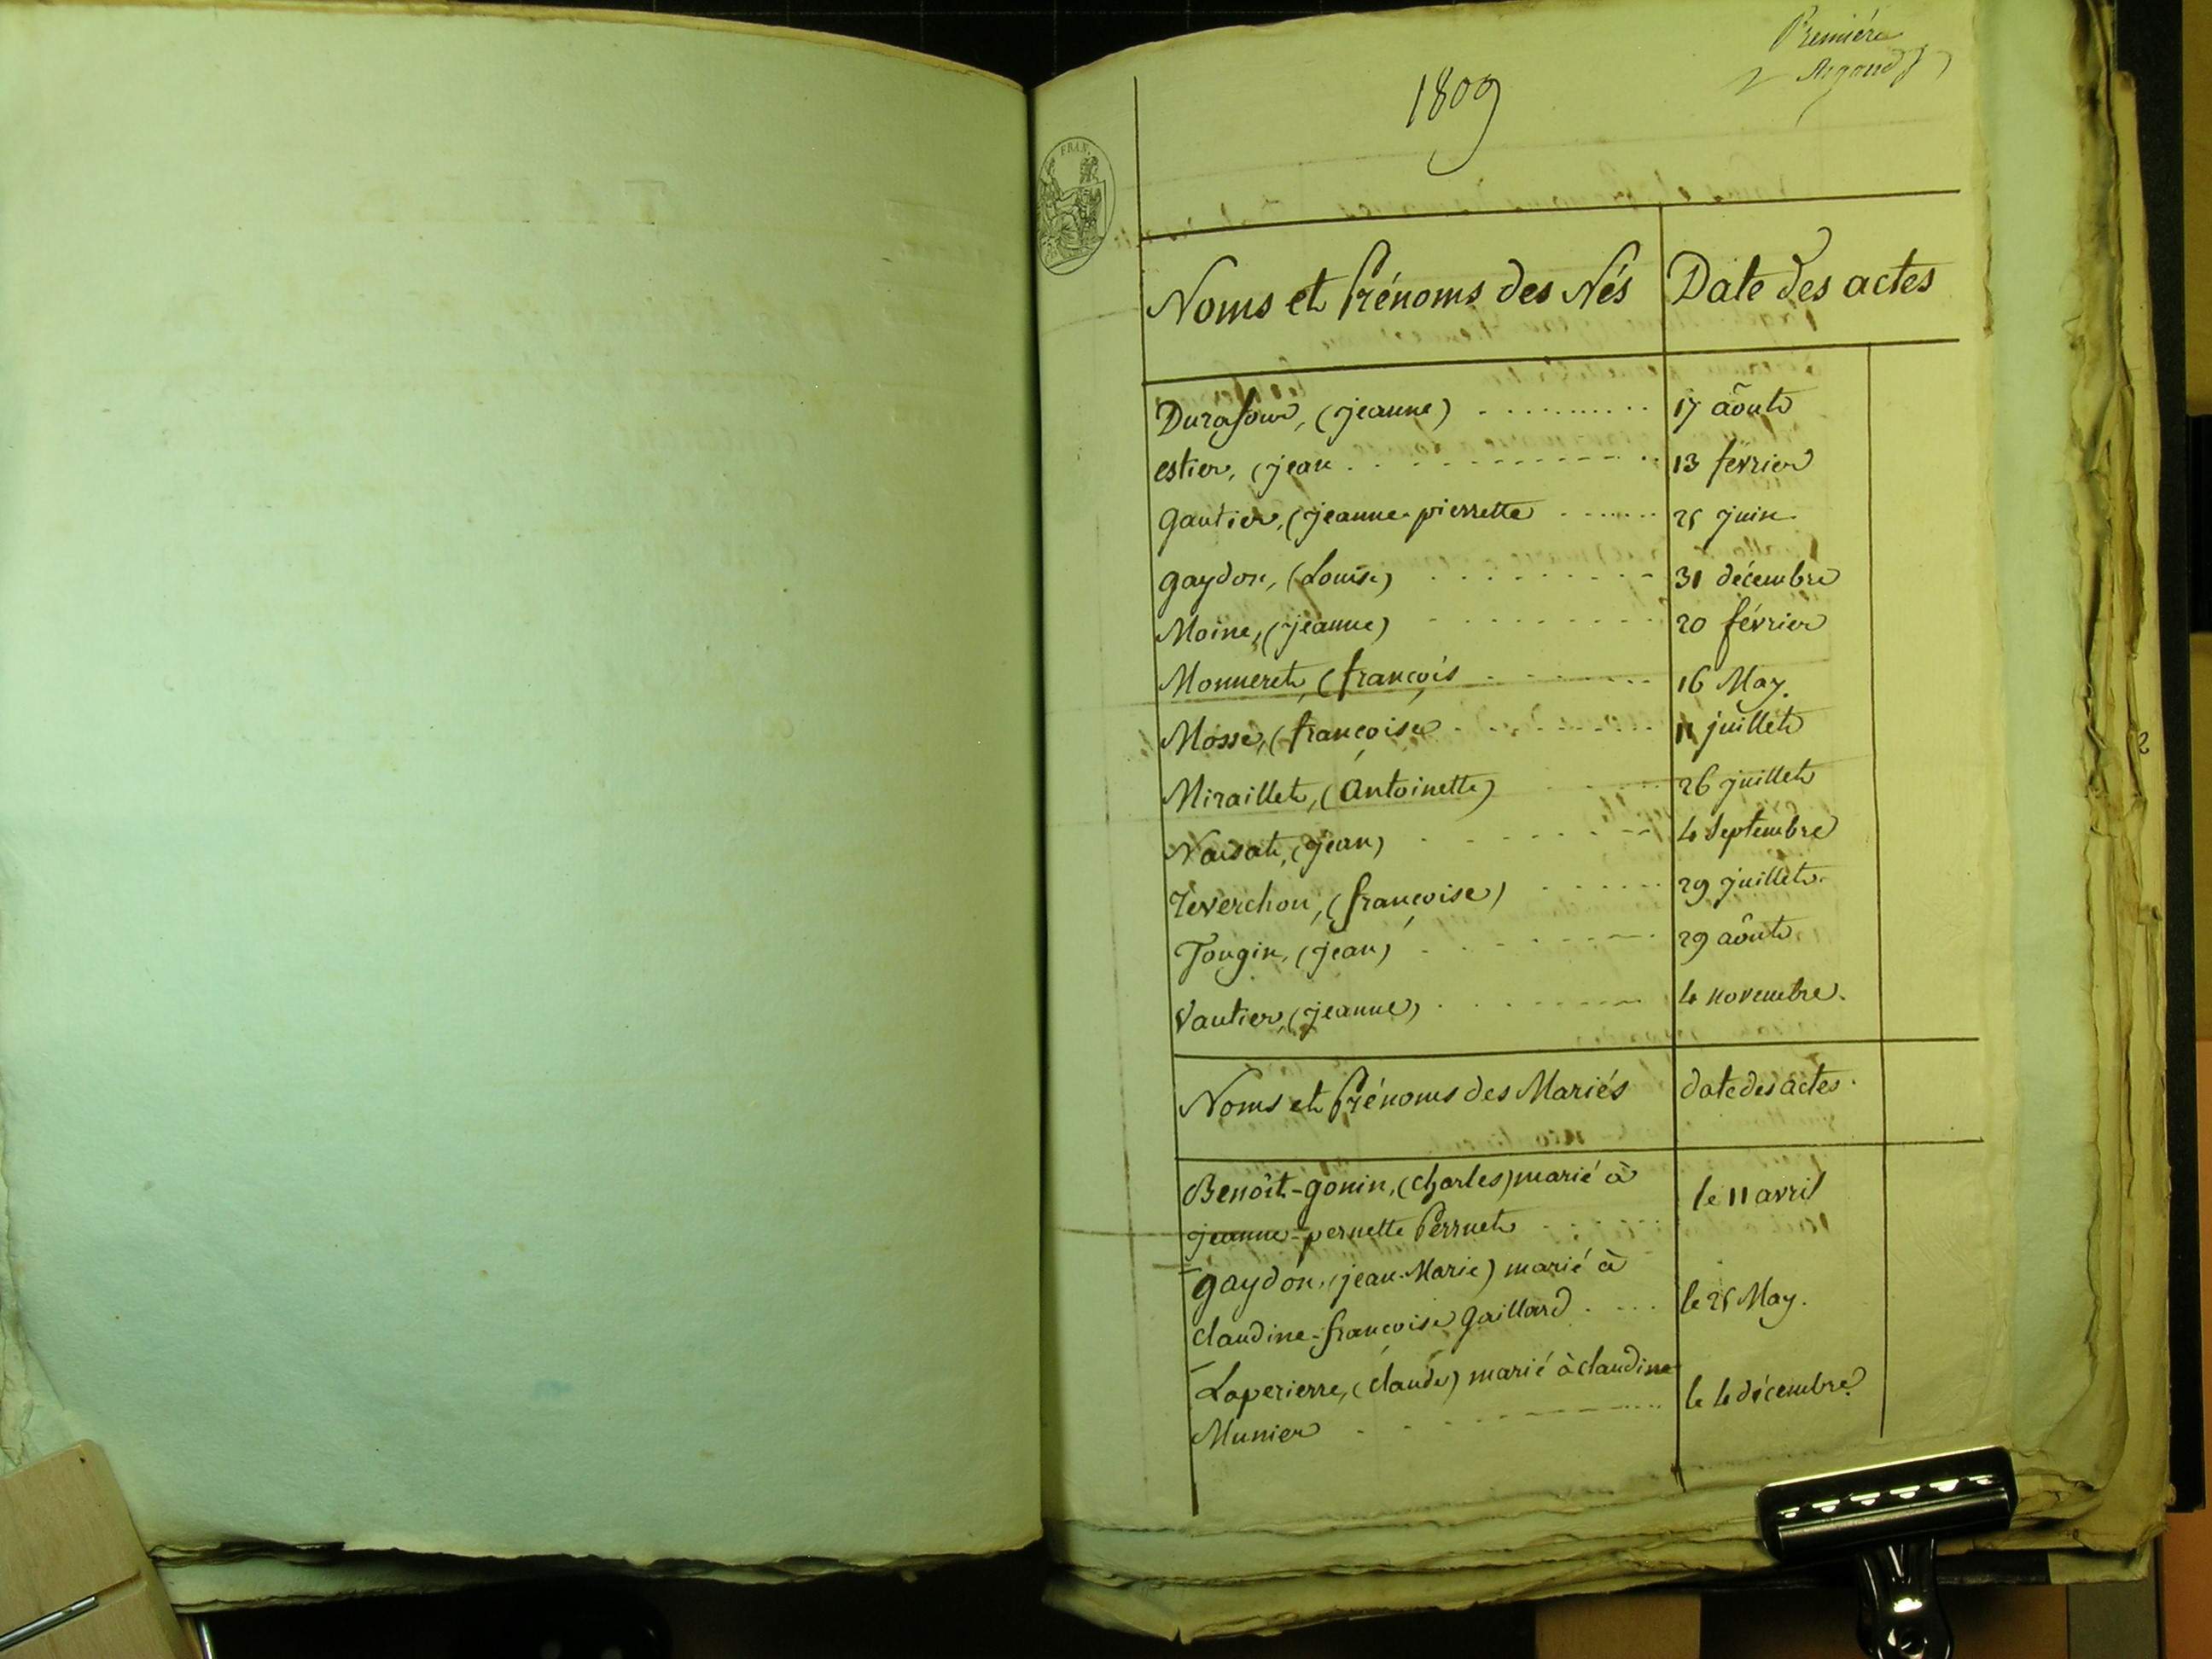 Première
Argoud
1809
FRAN.
Noms et Prénoms des Nés Date des actes
Durafour, (jeanne) .......... 17 âoute
estier, (jean .......... 13 février
gautier, (jeanne-pierrette ....... 25 juin
gaydon, (Louise) ......... 31 décembre
Moine, (jeanne) ......... 20 février
Monneret, (françois ........ 16 May.
Mosse, (françoise .......... 11 juillet
Miraillet, (Antoinette) ..... 26 juillet
(jean) ........ 4 Septembre
(françoise) ...... 29 juillet.
Tongin, (jean) ........ 29 aôute
Vautier, (jeanne) ........ 4 novembre.
Noms et Prénoms des Mariés date des actes.
Benôit-gonin, (Charles) marié à le 11 avril
jeanne-pernette Perruet
gaydon, (jean-Marie) marié à
Claudine-françoise Gaillard .... le 25 May.
Laperierre, (claude) marié à claudine le 4 décembre
Munier ..........